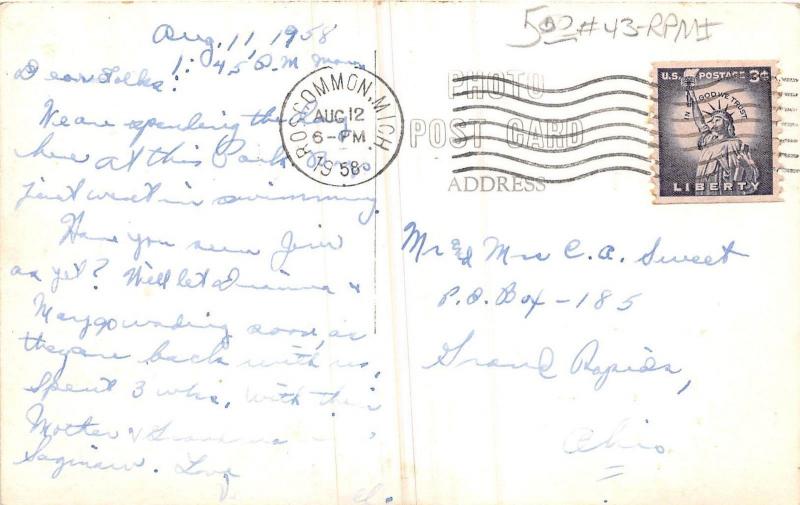 Aug. 11, 1958
1:45 P.M.
Dear Folks!
We are spending the
here at this Park.
just went in swimming.
Have you seen
as yet? Will let &
Mary go wading soon, as
they are back with us,
spent 3 wks. with their
Mother & Grandma
Saginaw. Love
ROSCOMMON, MICH.
AUG 12
6-PM
1958
500 #43-RPM
PHOTO
POST CARD
ADDRESS
U.S. POSTAGE 3¢
IN GOD WE TRUST
LIBERTY
Mr and Mrs C.A. Sweet
P.O. Box - 185
Grand Rapids,
Ohio